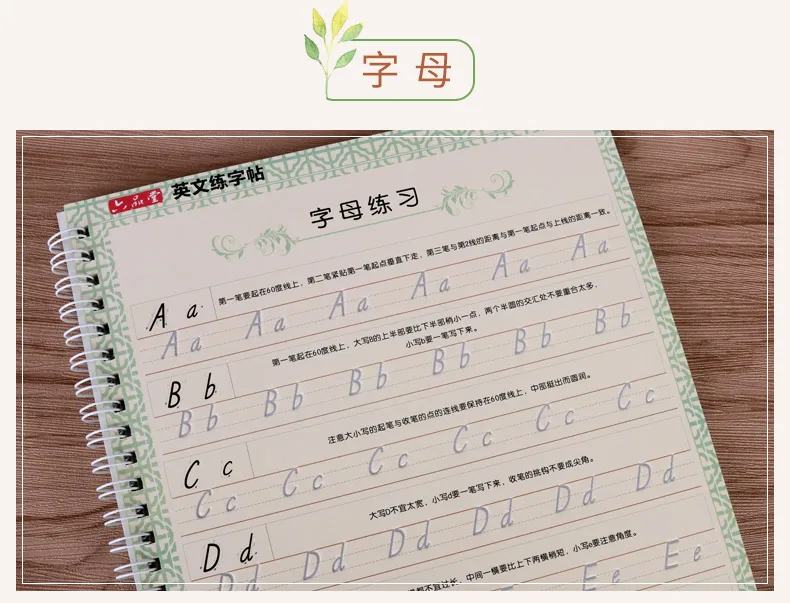 字母
六品堂 英文练字帖
字母练习
Aa 第一笔要起在60度线上，第二笔紧贴第一笔起点垂直下走，第三笔与第2线的距离与第一笔起点与上线的距离一致。
Aa Aa Aa Aa Aa Aa
Bb 第一笔起在60度线上，大写B的上半部要比下半部稍小一点，两个半圆的交汇处不要重合太多，
小写b要一笔写下来。
Bb Bb Bb Bb Bb Bb
Cc 注意大小写的起笔与收笔的点的连线要保持在60度线上，中部挺出而圆润。
Cc Cc Cc Cc Cc Cc
Dd 大写D不宜太宽，小写d要一笔写下来，收笔的挑钩不要成尖角。
Dd Dd Dd Dd Dd Dd
都不宜过长，中间一横要比上下两横稍短，小写e要注意角度。
Ee Ee